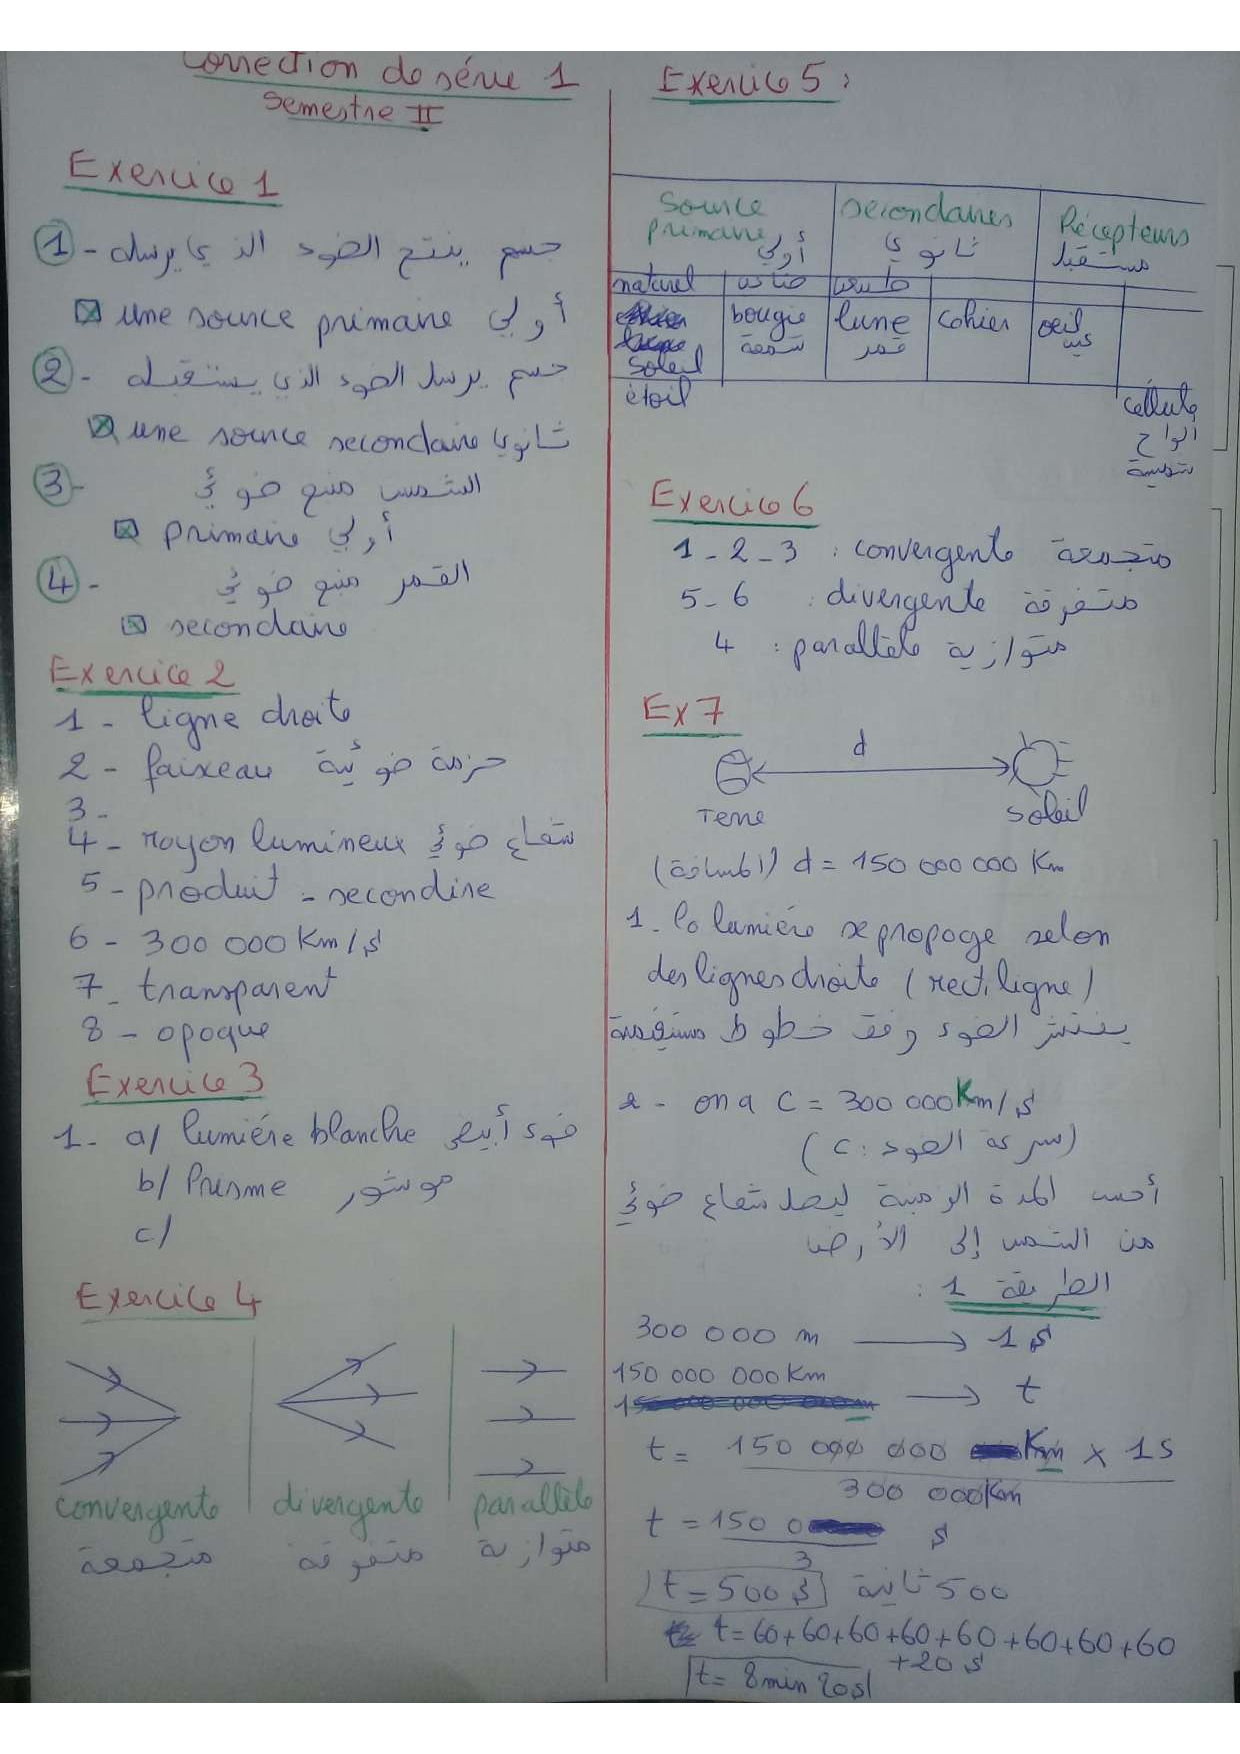 Correction de série 1
Semestre II
Exercice 1
1 - جسم ينتج الضوء الذي يرسله
une source primaire أولي
2 - جسم يرسل الضوء الذي يستقبله
une source secondaire ثانوي
3 - الشمس منبع ضوئي
primaire أولي
4 - القمر منبع ضوئي
secondaire
Exercice 2
1 - ligne droite
2 - faixeau حزمة ضوئية
3 -
4 - rayon lumineux شعاع ضوئي
5 - produit - secondire
6 - 300 000 Km/s
7 - transparent
8 - opaque
Exercice 3
1 - a/ lumiére blanche ضوء أبيض
b/ Prisme موشور
c/
Exercice 4
convergente divergente parallèle
متجمعة متفرقة متوازية
Exercice 5 :
Source primaire أولي
secondaires ثانوي
Récepteurs مستقبل
naturel
soleil bougie lune cahier oeil
شمعة قمر عين
étoil
céllule
الواح
شمسية
Exercice 6
1 - 2 - 3 : convergente متجمعة
5 - 6 : divergente متفرقة
4 : parallèle متوازية
Ex 7
d
Terre Soleil
(المسافة) d = 150 000 000 Km
1 - la lumiére se propage selon
des lignes droite (rectiligne)
ينتشر الضوء وفق خطوط مستقيمة
2 - on a c = 300 000 Km/s
(سرعة الضوء : c)
أحسب المدة الزمنية ليصل شعاع ضوئي
من الشمس إلى الأرض
الطريقة 1 :
300 000 m → 1 s
150 000 000 Km
→ t
t = 150 000 000 Km x 1s
300 000 Km
t = 150 0 s
3
t = 500 s 500 ثانية
t = 60+60+60+60+60+60+60+60
+20 s
t = 8min 20s